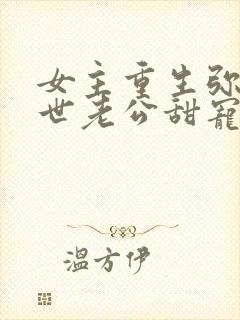 女主重生弥
世老公甜寵
溫方伊